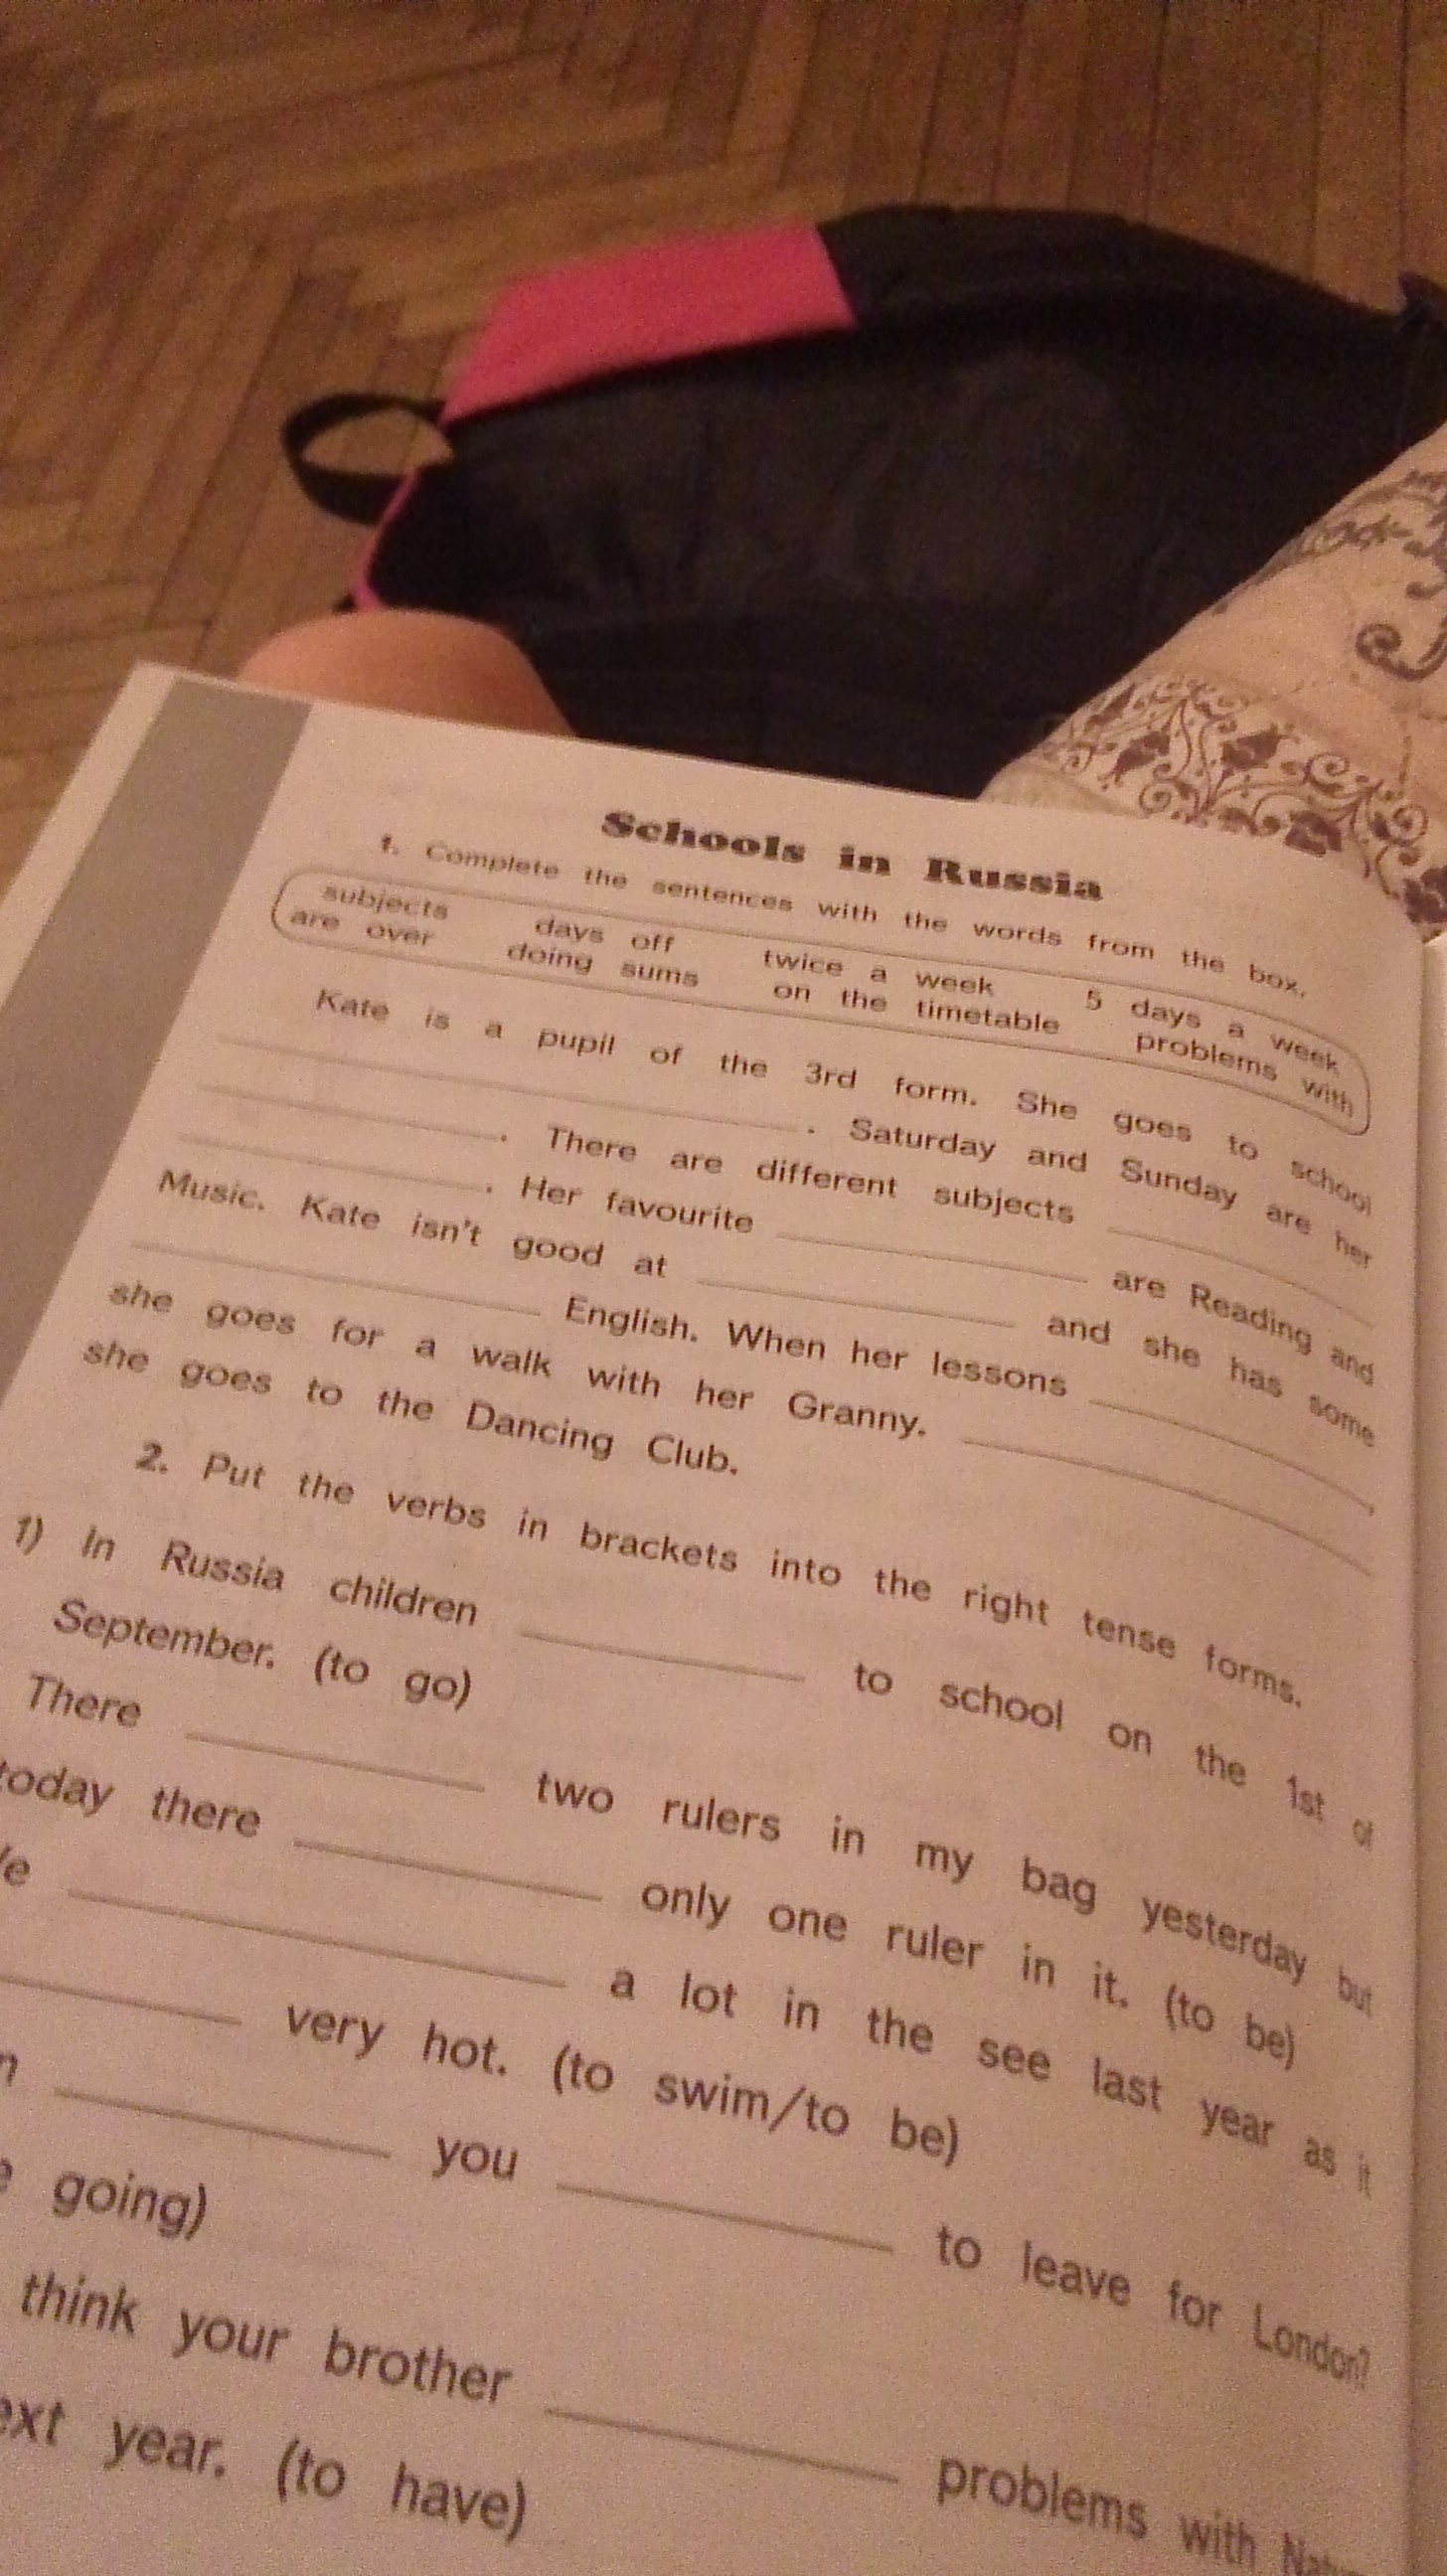 Schools in Russia
1. Complete the sentences with the words from the box.
subjects days off twice a week 5 days a week
are over doing sums on the timetable problems with
Kate is a pupil of the 3rd form. She goes to school
____________. Saturday and Sunday are her
____________. There are different subjects ____________
____________. Her favourite ____________ are Reading and
Music. Kate isn't good at ____________ and she has some
____________ English. When her lessons ____________,
she goes for a walk with her Granny. ____________
she goes to the Dancing Club.
2. Put the verbs in brackets into the right tense forms.
1) In Russia children ____________ to school on the 1st of
September. (to go)
There ____________ two rulers in my bag yesterday but
today there ____________ only one ruler in it. (to be)
____________ a lot in the see last year as it
____________ very hot. (to swim/to be)
____________ you ____________ to leave for London?
going)
think your brother ____________ problems with
year. (to have)